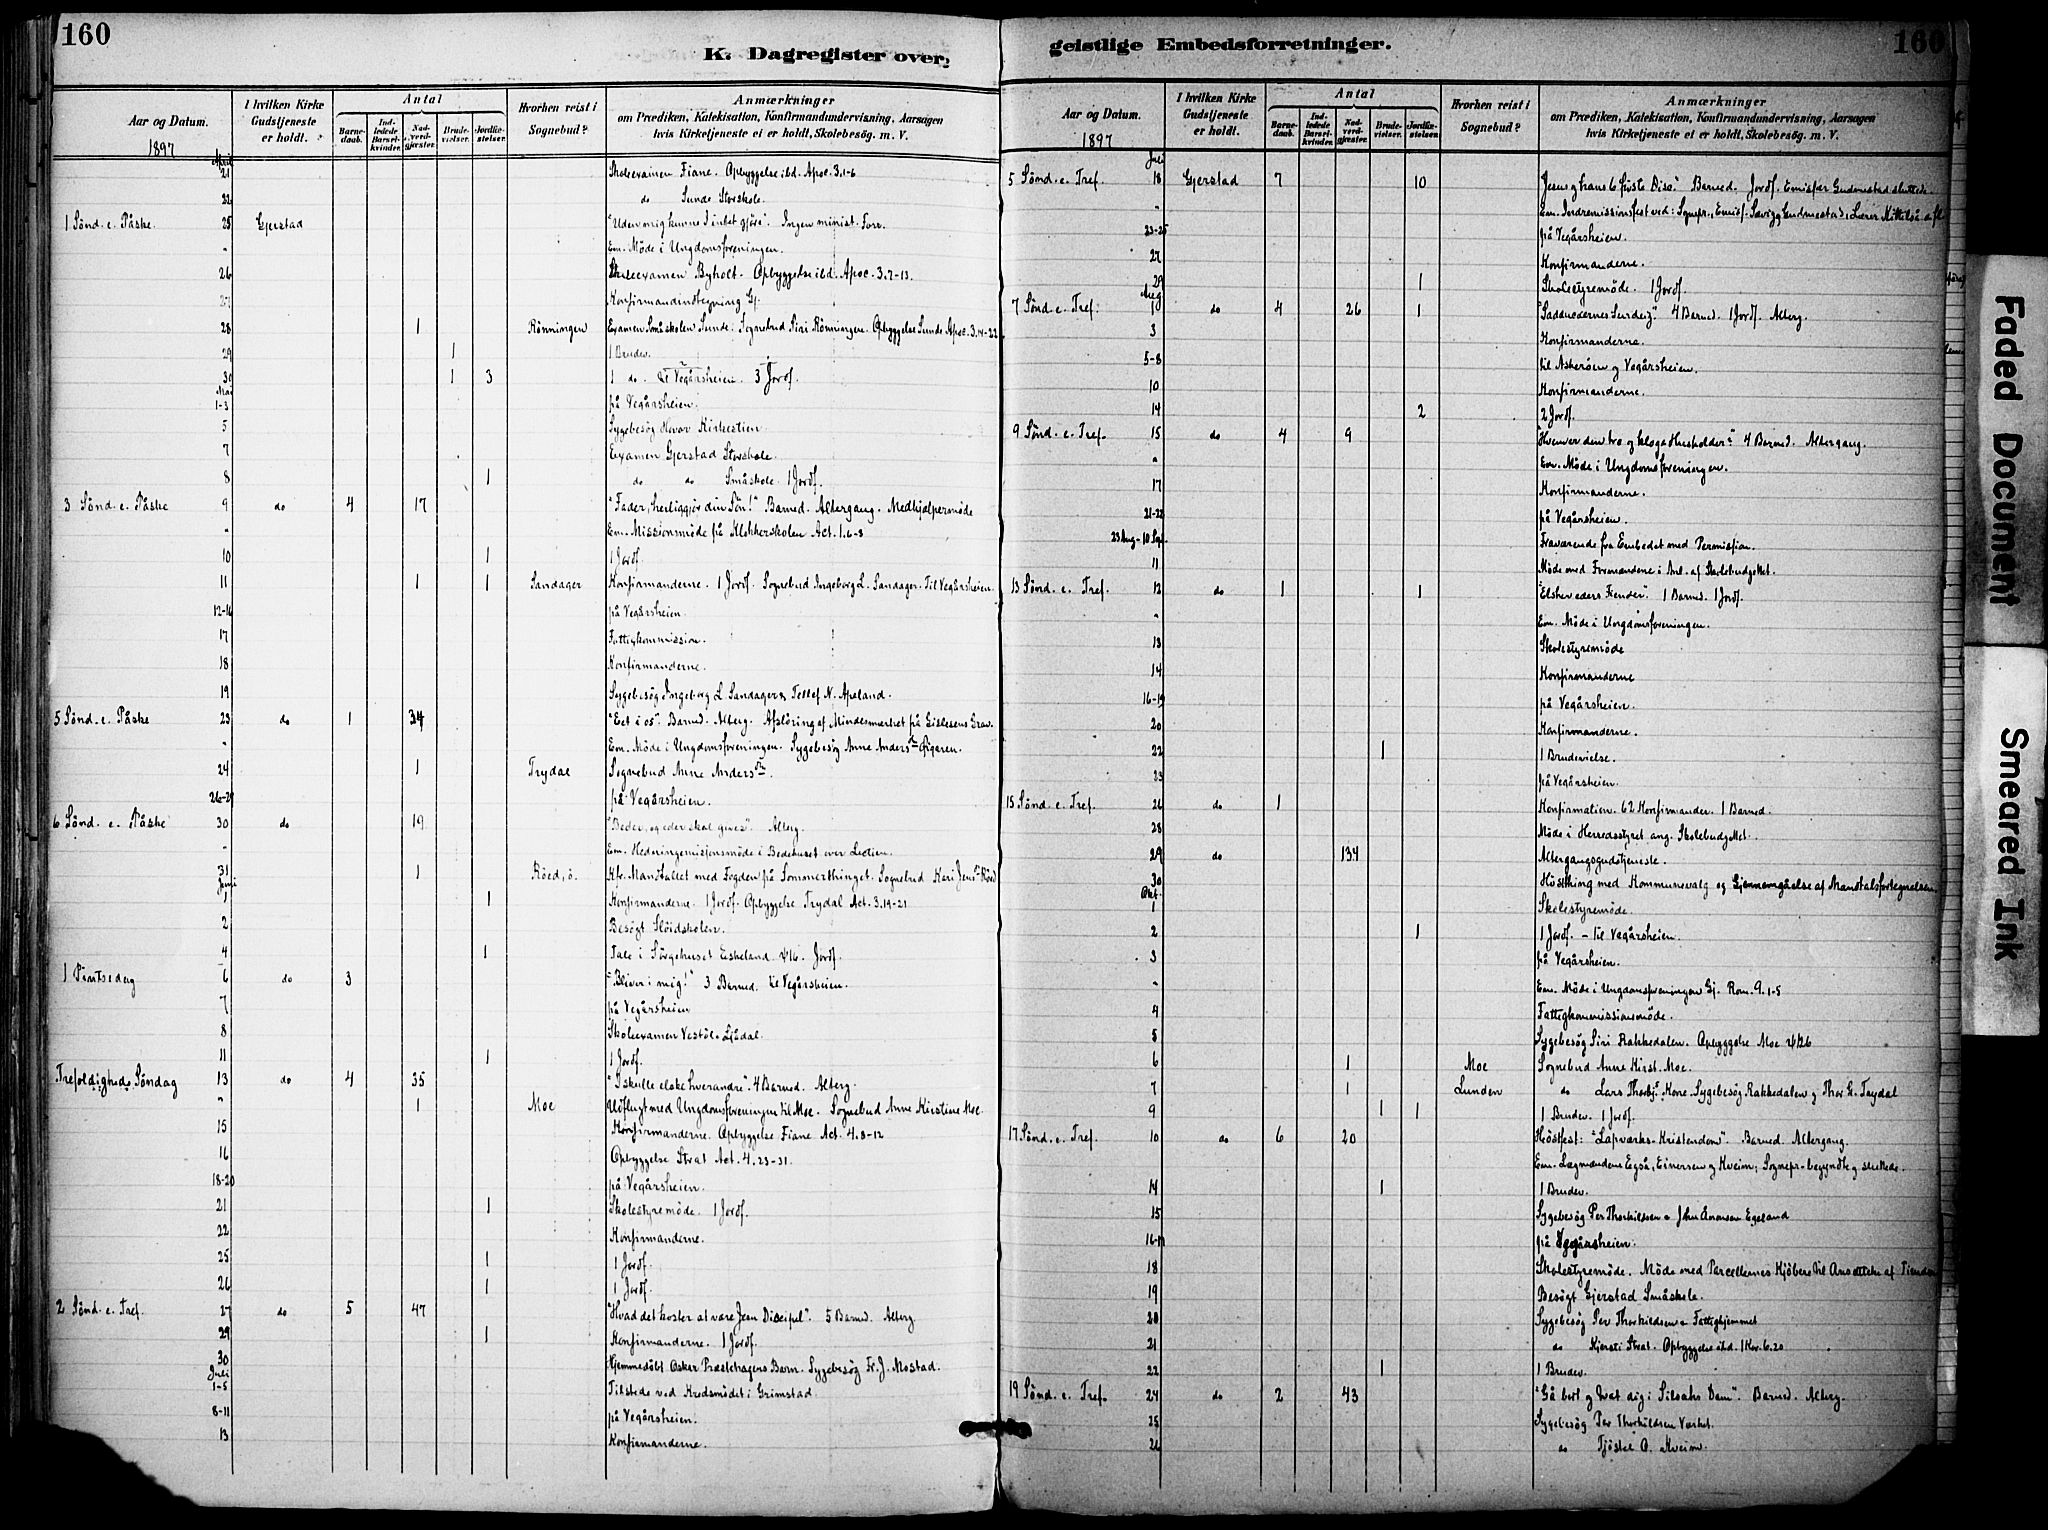 160
K. Dagregister over
Aar og Datum.
I hvilken Kirke Gudstjeneste er holdt.
Antal
Barnedaab.
Indledede Barselkvinder.
Nadverdgjæster.
Brudevielser.
Jordfæstelser.
Hvorhen reist i Sognebud?
Anmærkninger
om Prædiken, Katekisation, Konfirmandundervisning, Aarsagen
hvis Kirketjeneste ei er holdt, Skolebesög. m. V.
1897
April
21 Skoleexamen Fiane. Opbyggelse ibd. Apoc. 3.1-6
22 do Sunde Storskole.
1 Sönd. e. Påske 25 Gjerstad "Uden mig kunne I intet gjöre". Ingen minist. Forr.
" Em. Möde i Ungdomsforeningen.
26 Skoleexamen Byholt. Opbyggelse ibd. Apoc. 3.7-13.
27 Konfirmandindtegning Gj.
28 1 Rönningen Examen Småskolen Sunde. Sognebud Siri Rönningen. Opbyggelse Sunde Apoc. 3.14-22
29 1 1 Brudev.
30 1 3 1 do. til Vegårsheien. 3 Jordf.
Mai
1-3 på Vegårsheien.
5 Sygebesög Kirkestien
7 Examen Gjerstad Storskole.
8 1 do do Småskole. 1 Jordf.
3 Sönd. e. Påske 9 do 4 17 "Fader, herliggjör din Sön!" Barned. Altergang. Medhjælpermöde
" Em. Missionsmöde på Klokkerskolen Act. 1.6-8
10 1 1 Jordf.
11 1 1 Sandager Konfirmanderne. 1 Jordf. Sognebud Ingeborg L. Sandager. Til Vegårsheien.
12-16 på Vegårsheien.
17 Fattigkommission.
18 Konfirmanderne.
19 Sygebesög Ingeborg L. Sandager, Tellef N. Apeland.
5 Sönd. e. Påske 23 do 1 34 "Eet i os". Barned. Alterg. Afslöring af Mindesmerket på Gislesens Grav.
" Em. Möde i Ungdomsforeningen. Sygebesög Anne Andersdtr
24 1 Trydal Sognebud Anne Andersdtr.
26-29 på Vegårsheien.
6 Sönd. e. Påske 30 do 19 "Beder, og eder skal gives". Alterg.
" Em. Hedningemisjonsmöde i Bedehuset over Lectien.
31 1 Röed, ö. Mandtallet med Fogden på Sommerthinget. Sognebud Kari Jensdtr Röed
Juni
1 1 Konfirmanderne. 1 Jordf. Opbyggelse Trydal Act. 3.19-21
2 Besögt Slöidskolen.
4 1 Tale i Sörgehuset Eskeland. Jordf.
1 Pintsedag 6 do 3 "Bliver i mig!" 3 Barned. til Vegårsheien.
7 på Vegårsheien
8 Skoleexamen Vestöl
11 1 1 Jordf.
Trefoldigheds Söndag 13 do 4 35 "I skulle elske hverandre". 4 Barned. Alterg.
" 1 Moe Udflugt med Ungdomsforeningen til Moe. Sognebud Anne Kirstine Moe.
15 Konfirmanderne. Opbyggelse Fiane Act. 4.8-12
16 Opbyggelse Strat Act. 4.23-31.
18-20 på Vegårsheien.
21 1 Skolestyremöde. 1 Jordf.
22 Konfirmanderne.
25 1 1 Jordf.
26 1 1 Jordf.
2 Sönd. e. Tref. 27 do 5 47 "Hvad det koster at være Jesu Discipel". 5 Barned. Alterg.
29 1 Konfirmanderne. 1 Jordf.
30 Hjemmedöbt Oskar Præstehagens Barn. Sygebesög Fr. J. Mostad.
Juli
1-5 Tilstede ved Kredsmödet i Grimstad
8-11 på Vegårsheien.
13 Konfirmanderne.
geistlige Embedsforretninger.
160
Aar og Datum.
I hvilken Kirke Gudstjeneste er holdt.
Antal
Barnedaab.
Indledede Barselkvinder.
Nadverdgjæster.
Brudevielser.
Jordfæstelser.
Hvorhen reist i Sognebud?
Anmærkninger
om Prædiken, Katekisation, Konfirmandundervisning, Aarsagen
hvis Kirketjeneste ei er holdt, Skolebesög. m. V.
1897
Juli
5 Sönd. e. Tref. 18 Gjerstad 7 10 Jesus og hans 6 förste Disc." Barned. Jordf. Emissær Gudmestad sluttede.
" Em. Indremissionsfest ved: Sognepr., Emiss. Gudmestad, Lærer
23-25 på Vegårsheien.
27 Konfirmanderne.
29 1 Skolestyremöde. 1 Jordf.
Aug
7 Sönd. e. Tref. 1 do 4 26 1 "Saddukæernes Surdeig" 4 Barned. 1 Jordf. Alterg.
3 Konfirmanderne.
5-8 til Askeröen og Vegårsheien.
10 Konfirmanderne.
14 2 2 Jordf.
9 Sönd. e. Tref. 15 do 4 9 "Hvem er den tro og kloge Husholder?" 4 Barned. Altergang.
" Em. Möde i Ungdomsforeningen.
17 Konfirmanderne.
21-22 på Vegårsheien.
23 Aug - 10 Sep. Fraværende fra Embedet med Permission.
11 Möde med Formændene i Anl. af Skolebudgettet.
13 Sönd. e. Tref. 12 do 1 1 "Elsker eders Fiender" 1 Barned. 1 Jordf.
" Em. Möde i Ungdomsforeningen.
13 Skolestyremöde
14 Konfirmanderne
16-19 på Vegårsheien.
20 Konfirmanderne.
22 1 1 Brudevielse.
23 på Vegårsheien.
15 Sönd. e. Tref. 26 do 1 Konfirmation. 62 Konfirmander. 1 Barned.
28 Möde i Herredsstyret ang. Skolebudgettet.
29 do 134 Altergangsgudstjeneste.
30 Hösthing med Kommunevalg og Gjennemgåelse af Mandtalsfortegnelsen
Okt.
1 Skolestyremöde.
2 1 1 Jordf. - til Vegårsheien.
3 på Vegårsheien.
" Em. Möde i Ungdomsforeningen Gj. Rom. 9.1-5
4 Fattigkommissionsmöde.
5 Sygebesög Siri Rakkedalen. Opbyggelse Moe
6 1 Moe Sognebud Anne Kirst. Moe.
7 1 Lunden do Lars Thorbj. Kone. Sygebesög Rakkedalen og Thor G. Trydal
9 1 1 1 Brudev. 1 Jordf.
17 Sönd. e. Tref. 10 do 6 20 Höstfest: "Lapværks-Kristendom". Barned. Altergang.
Em. Lægmændene Egså, Einersen og Kveim; Sognepr. begyndte og sluttede.
14 1 1 Brudev.
15 Sygebesög Per Thorkildsen Egeland
16-17 på Vegårsheien.
18 Skolestyremöde. Möde med Parcellernes Kjöbere til Ansættelse af Tienden
19 Besögt Gjerstad Småskole.
20 Sygebesög Per Thorkildsen Fattighjemmet
21 do Kjersti Strat. Opbyggelse ibd. 1 Kor. 6.20
22 1 1 Brudev.
19 Sönd. e. Tref. 24 do 2 43 "Gå bort og toæt dig i Siloahs Dam". Barned. Alterg.
25 Sygebesög Per Thorkildsen Værket.
26 do Tjöstel O. Kveim.
Faded Document
Smeared Ink